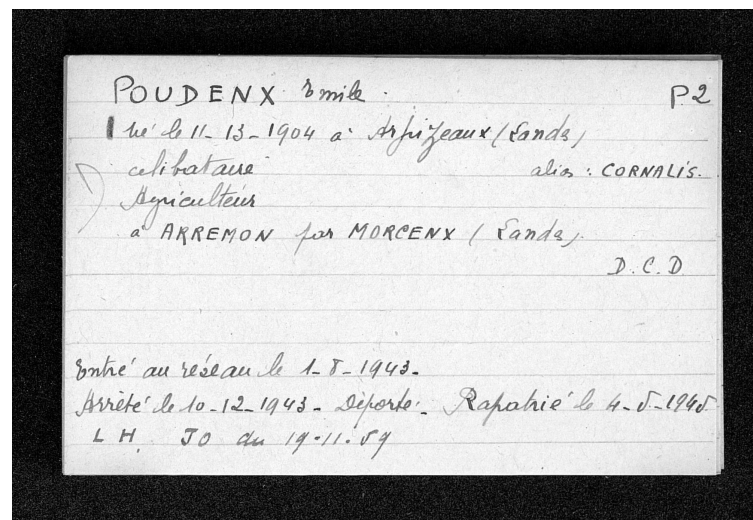 POUDENX Emile. P2
né le 11-13-1904 à Arpizeaux (Landes)
célibataire alias : CORNALIS.
Agriculteur
à ARREMON par MORCENX (Landes).
D.C.D
Entré au réseau le 1-8-1943.
Arrêté le 10-12-1943. Déporté. Rapatrié le 4-5-1945
L H. JO du 19.11.59